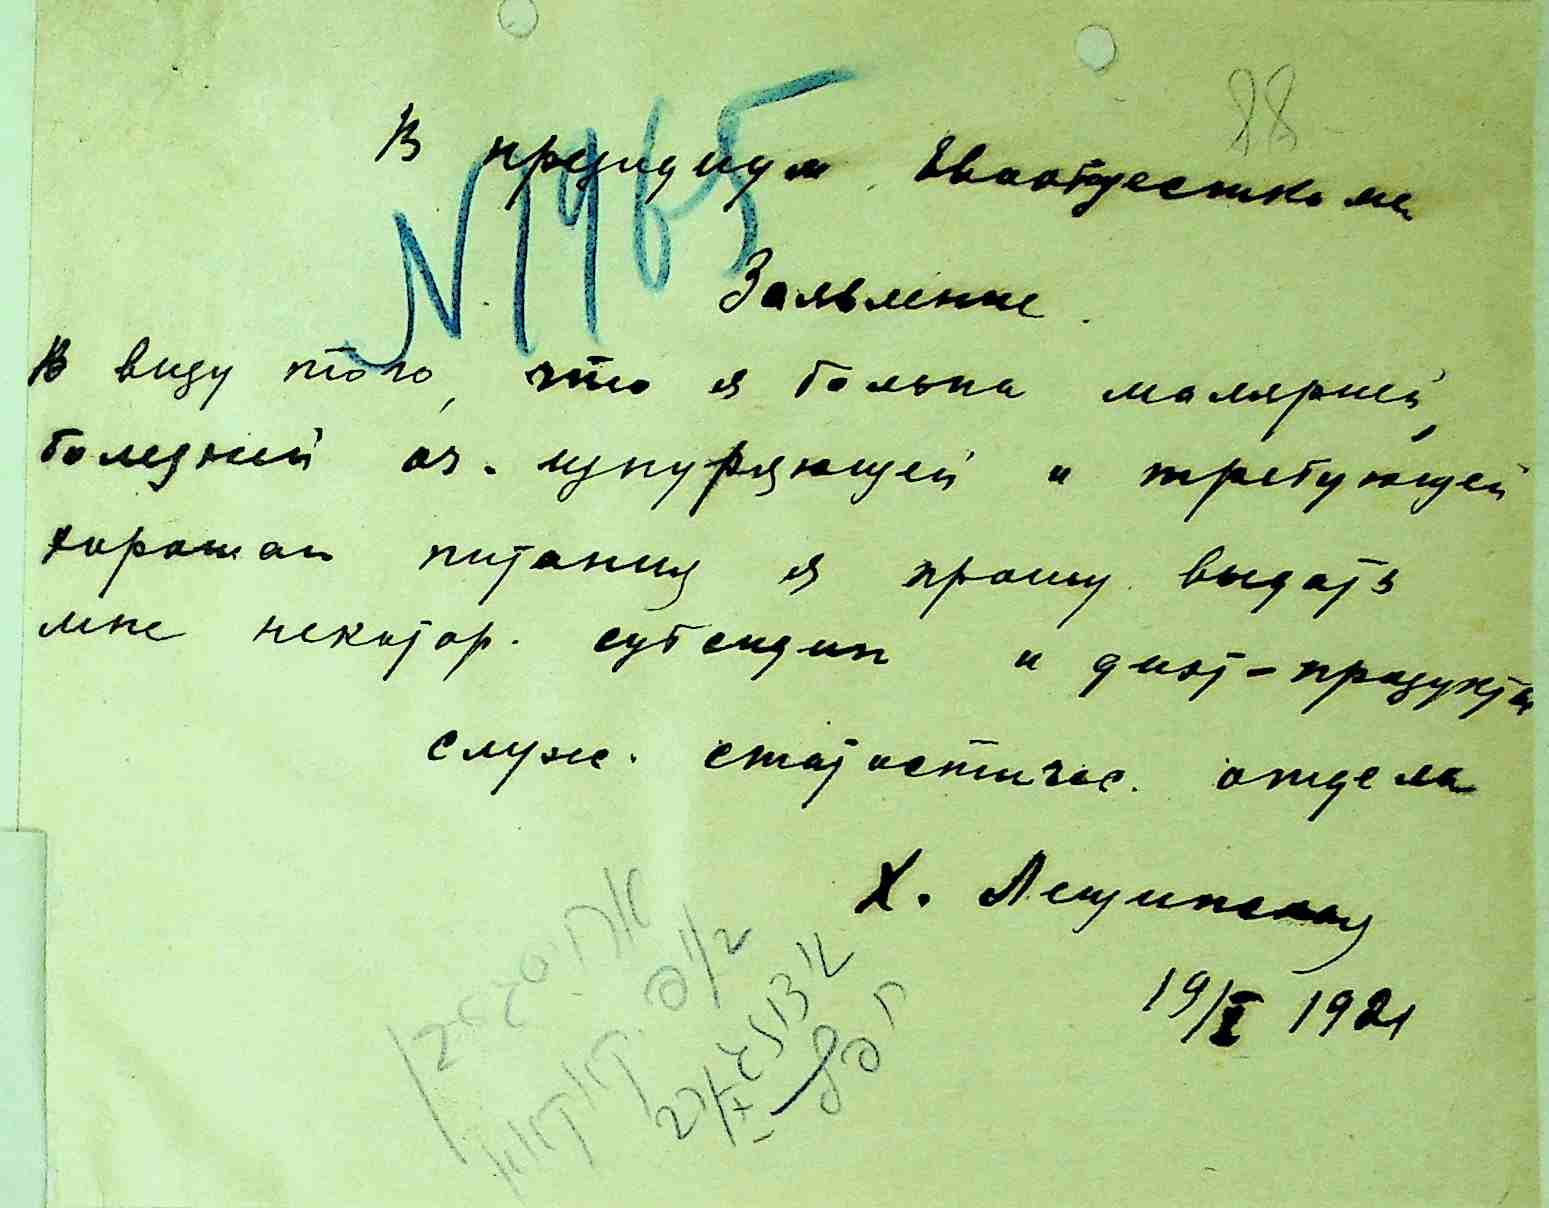 88
В президиум Евобщесткома
№ 1965
Заявление.
В виду того, что я больна малярией,
болезней оч. изнуряющей и требующей
хорошаго питания я прошу выдать
мне некотор. субсидии и диэт-продукта
служ. статистичес. отдела
Х. Лещинская
19/X 1921